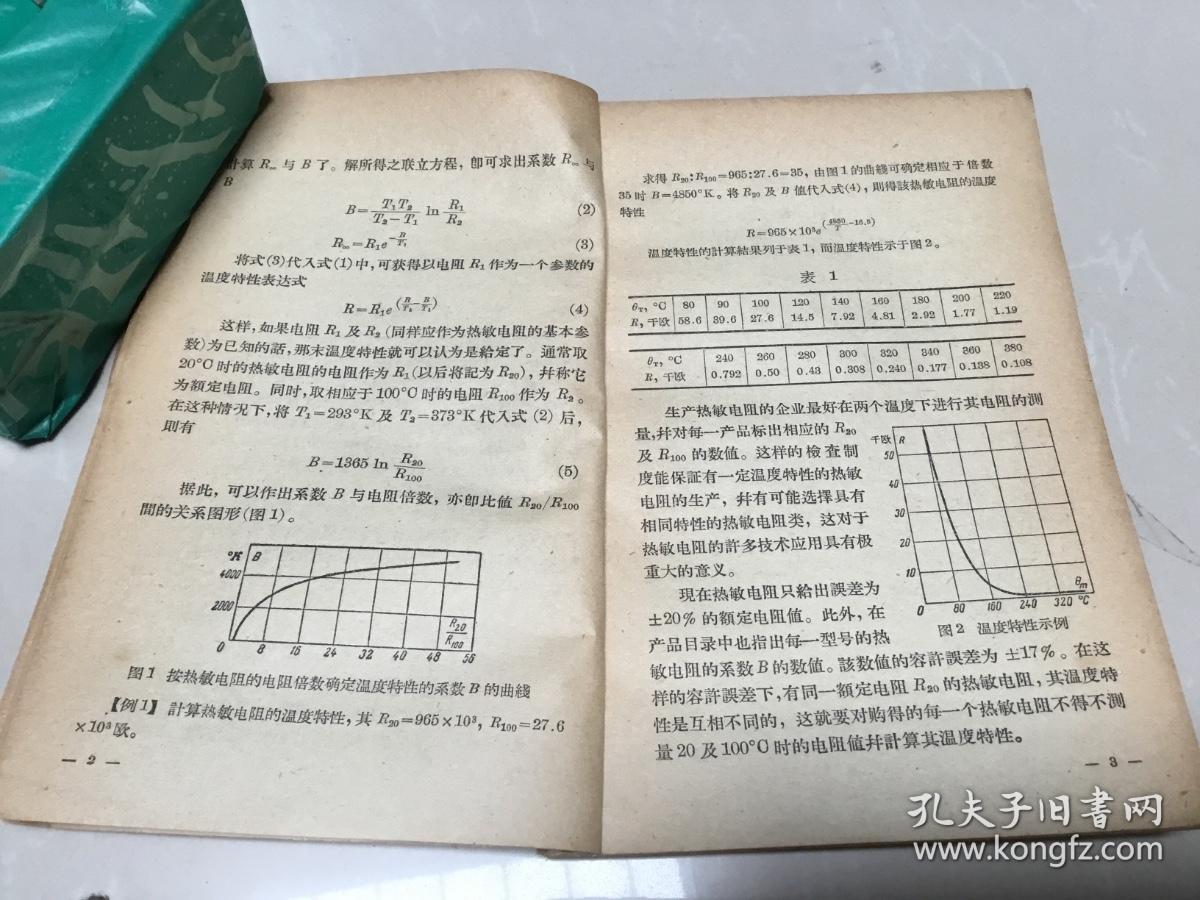 計算 R∞ 与 B 了。解所得之联立方程，卽可求出系数 R∞ 与
B
B=T₁T₂/(T₂−T₁) ln R₁/R₂ (2)
R∞=R₁e^(−B/T₁) (3)
将式(3)代入式(1)中，可获得以电阻 R₁ 作为一个参数的
温度特性表达式
R=R₁e^(B/T₁−B/T₁) (4)
这样，如果电阻 R₁ 及 R₂ (同样应作为热敏电阻的基本参
数)为已知的話，那末温度特性就可以认为是給定了。通常取
20°C 时的热敏电阻的电阻作为 R₁(以后将記为 R₂₀)，幷称它
为額定电阻。同时，取相应于 100°C 时的电阻 R₁₀₀ 作为 R₂。
在这种情况下，将 T₁=293°K 及 T₂=373°K 代入式 (2) 后，
則有
B=1365 ln R₂₀/R₁₀₀ (5)
据此，可以作出系数 B 与电阻倍数，亦卽比値 R₂₀/R₁₀₀
間的关系图形(图1)。
°K B
4000
2000
R₂₀/R₁₀₀
0 8 16 24 32 40 48 56
图1 按热敏电阻的电阻倍数确定温度特性的系数 B 的曲綫
【例1】 計算热敏电阻的温度特性，其 R₂₀=965×10³，R₁₀₀=27.6
×10³欧。
— 2 —
求得 R₂₀:R₁₀₀=965:27.6=35，由图1的曲綫可确定相应于倍数
35 时 B=4850°K。将 R₂₀ 及 B 值代入式(4)，則得該热敏电阻的温度
特性
R=965×10³e^(4850/T−16.5)
温度特性的計算結果列于表1，而温度特性示于图2。
表 1
θT, °C 80 90 100 120 140 160 180 200 220
R, 千欧 58.6 39.6 27.6 14.5 7.92 4.81 2.92 1.77 1.19
θT, °C 240 260 280 300 320 340 360 380
R, 千欧 0.792 0.50 0.43 0.308 0.240 0.177 0.138 0.108
生产热敏电阻的企业最好在两个温度下进行其电阻的測
量，幷对每一产品标出相应的 R₂₀
及 R₁₀₀ 的数值。这样的檢查制
度能保証有一定温度特性的热敏
电阻的生产，幷有可能选擇具有
相同特性的热敏电阻类，这对于
热敏电阻的許多技术应用具有极
重大的意义。
现在热敏电阻只給出誤差为
±20% 的額定电阻值。此外，在
产品目录中也指出每一型号的热
千欧 R
50
40
30
20
10
θm
0 80 160 240 320 °C
图2 温度特性示例
敏电阻的系数 B 的数值。該数值的容許誤差为 ±17%。在这
样的容許誤差下，有同一額定电阻 R₂₀ 的热敏电阻，其温度特
性是互相不同的，这就要对购得的每一个热敏电阻不得不測
量 20 及 100°C 时的电阻值幷計算其温度特性。
— 3 —
孔夫子旧书网
www.kongfz.com